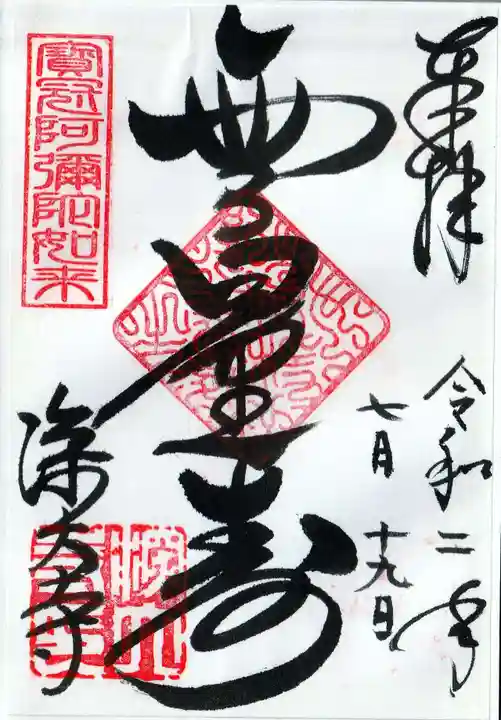 奉拝
令和二年
七月十九日
無量寿
寶冠阿彌陀如来
深大寺